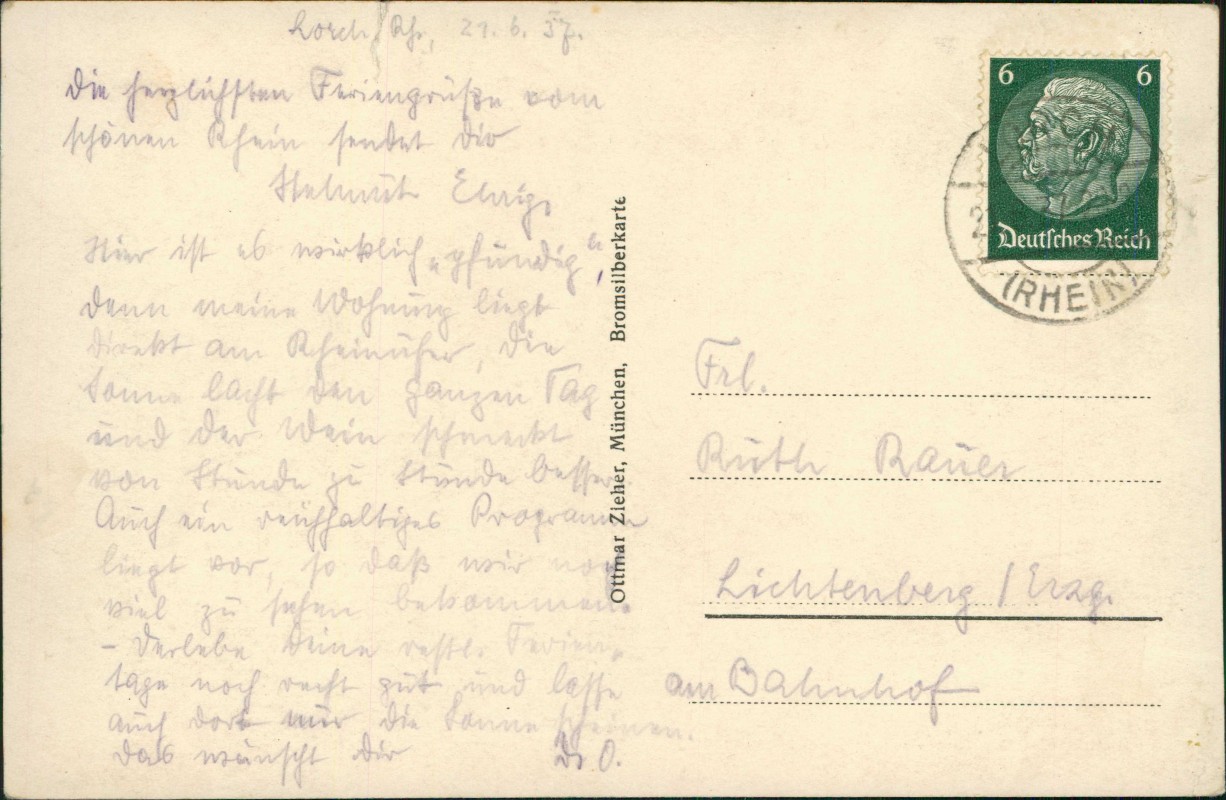 Lorch/Rh., 21.6.37.
Die herzlichsten Feriengrüße vom
schönen Rhein sendet Dir
Helmut
Hier ist es wirklich „pfundig“,
denn meine Wohnung liegt
direkt am Rheinufer, die
Sonne lacht den ganzen Tag
und der Wein schmeckt
von Stunde zu Stunde besser.
Auch ein reichhaltiges Programm
liegt vor, so daß wir noch
viel zu sehen bekommen.
- Verlebe Deine restl. Ferien-
tage noch recht gut und lasse
auch dort nur die Sonne scheinen.
Das wünscht Dir D. O.
Ottmar Zieher, München, Bromsilberkarte
6 6
Deutsches Reich
(RHEIN)
Frl.
Ruth Rauer
Lichtenberg / Erzg.
am Bahnhof